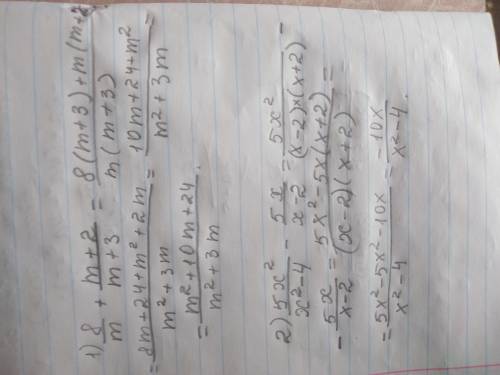 1) 8/m + (m+2)/(m+3) = (8(m+3)+m(m+2))/(m(m+3)) =
= (8m+24+m²+2m)/(m²+3m) = (10m+24+m²)/(m²+3m) =
= (m²+10m+24)/(m²+3m).
2) 5x²/(x²-4) - 5x/(x-2) = 5x²/((x-2)×(x+2)) -
- 5x/(x-2) = (5x²-5x(x+2))/((x-2)(x+2)) =
= (5x²-5x²-10x)/(x²-4) = -10x/(x²-4).